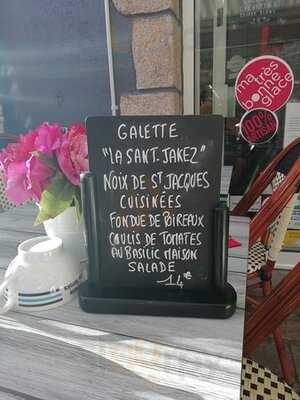 GALETTE
"LA SANT. JAKEZ"
NOIX DE ST JACQUES
CUISINÉES
FONDUE DE POIREAUX
COULIS DE TOMATES
AU BASILIC MAISON
SALADE
14€
ma très
bonne
glace
100%